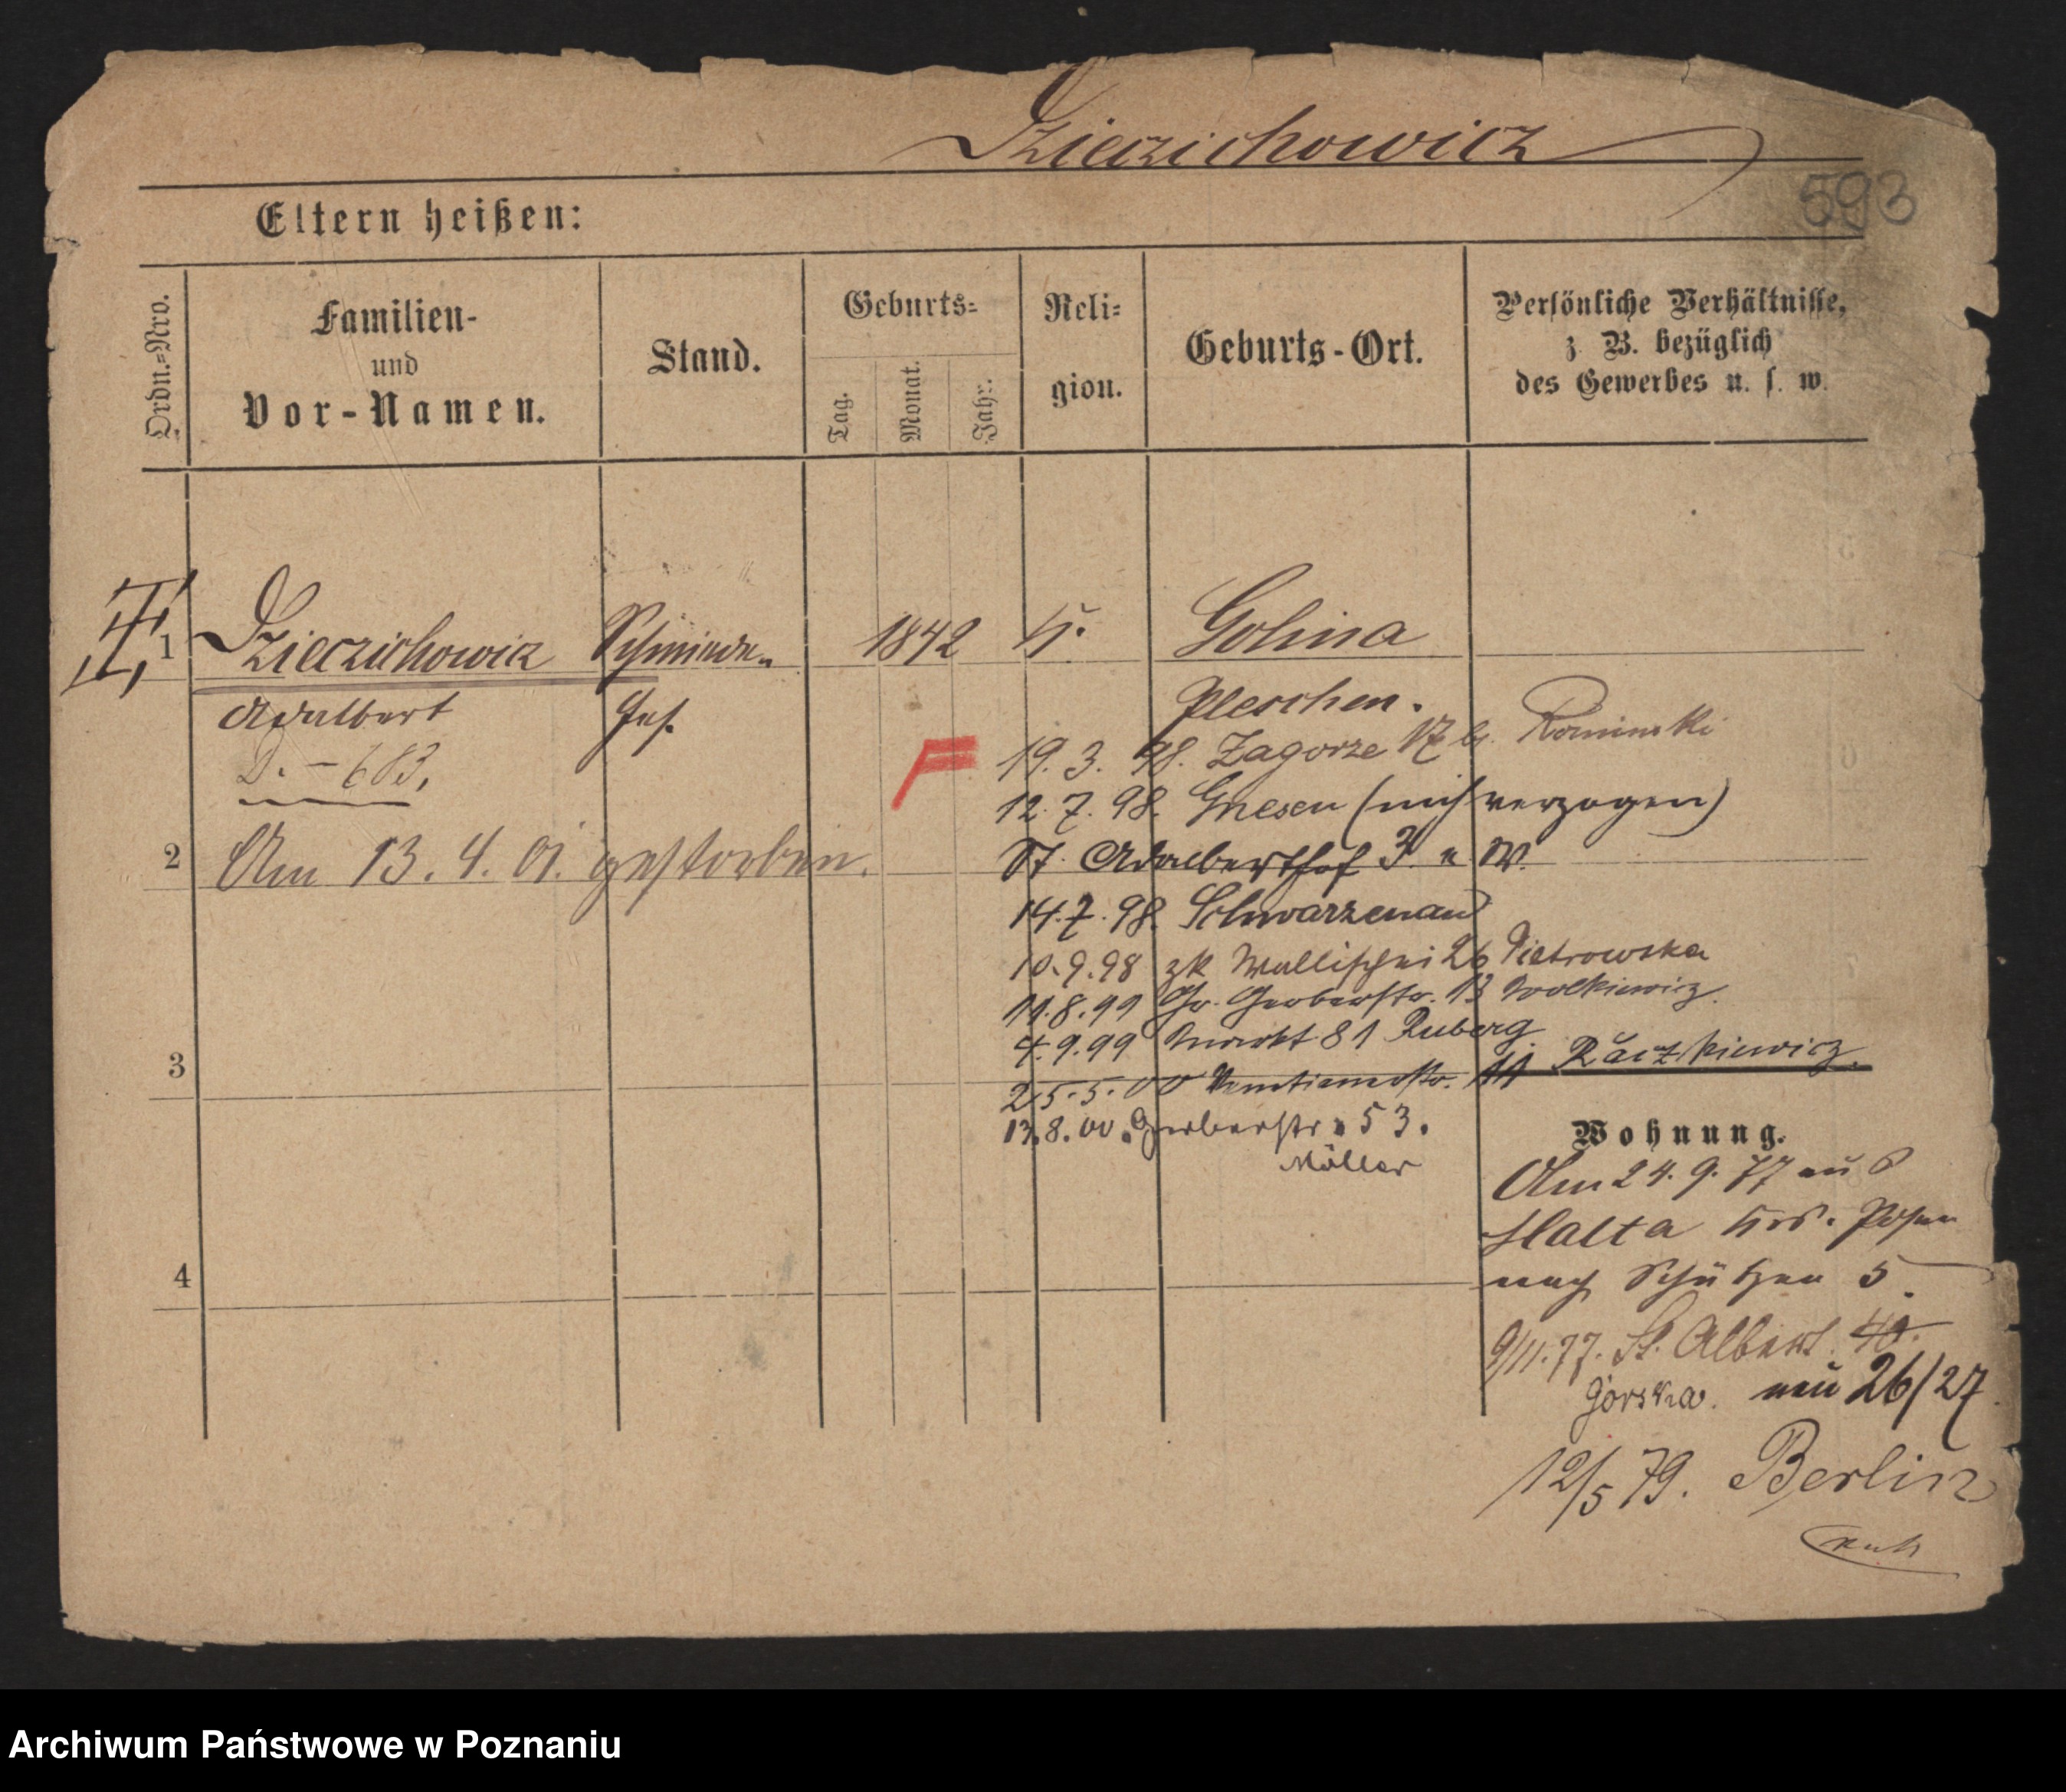 Dzieczichowicz
593
Eltern heißen:
Ordn.=Nro.
Familien-
und
Vor-Namen.
Stand.
Geburts=
Tag.
Monat.
Jahr.
Reli=
gion.
Geburts-Ort.
Persönliche Verhältnisse,
z. B. bezüglich
des Gewerbes u. s. w.
1 Dzieczichowicz Schmiede- 1842 K. Golina
Adalbert Ges. Pleschen.
D. - 683.
19. 3. 98. Zagorze 17 b. Rominski
12. 7. 98. Gnesen (nicht verzogen)
2 Am 13. 4. 01. gestorben.
St. Adalberthof 3 u W.
14. 7. 98. Schwarzenau
10. 9. 98 zk Wallischei 26 Pietrowska
11. 8. 99 Gr. Gerberstr. 13 Wolkiewicz.
4. 9. 99 Markt 81 Ruberg.
3
25. 5. 00 11 Raczkiewicz.
13. 8. 00. Gerberstr. 53.
Möller
Wohnung.
Am 24. 9. 77 aus
Malta Krs. Posen
nach Schützen 5.
4
9/11. 77. St. Albert. 40.
Gorska. neu 26/27
12/5 79. Berlin
Archiwum Państwowe w Poznaniu